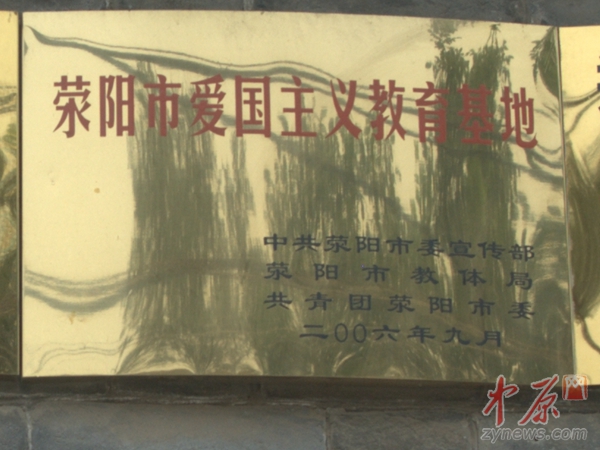 荥阳市爱国主义教育基地
中共荥阳市委宣传部
荥阳市教体局
共青团荥阳市委
二00六年九月
中原网
zynews.com